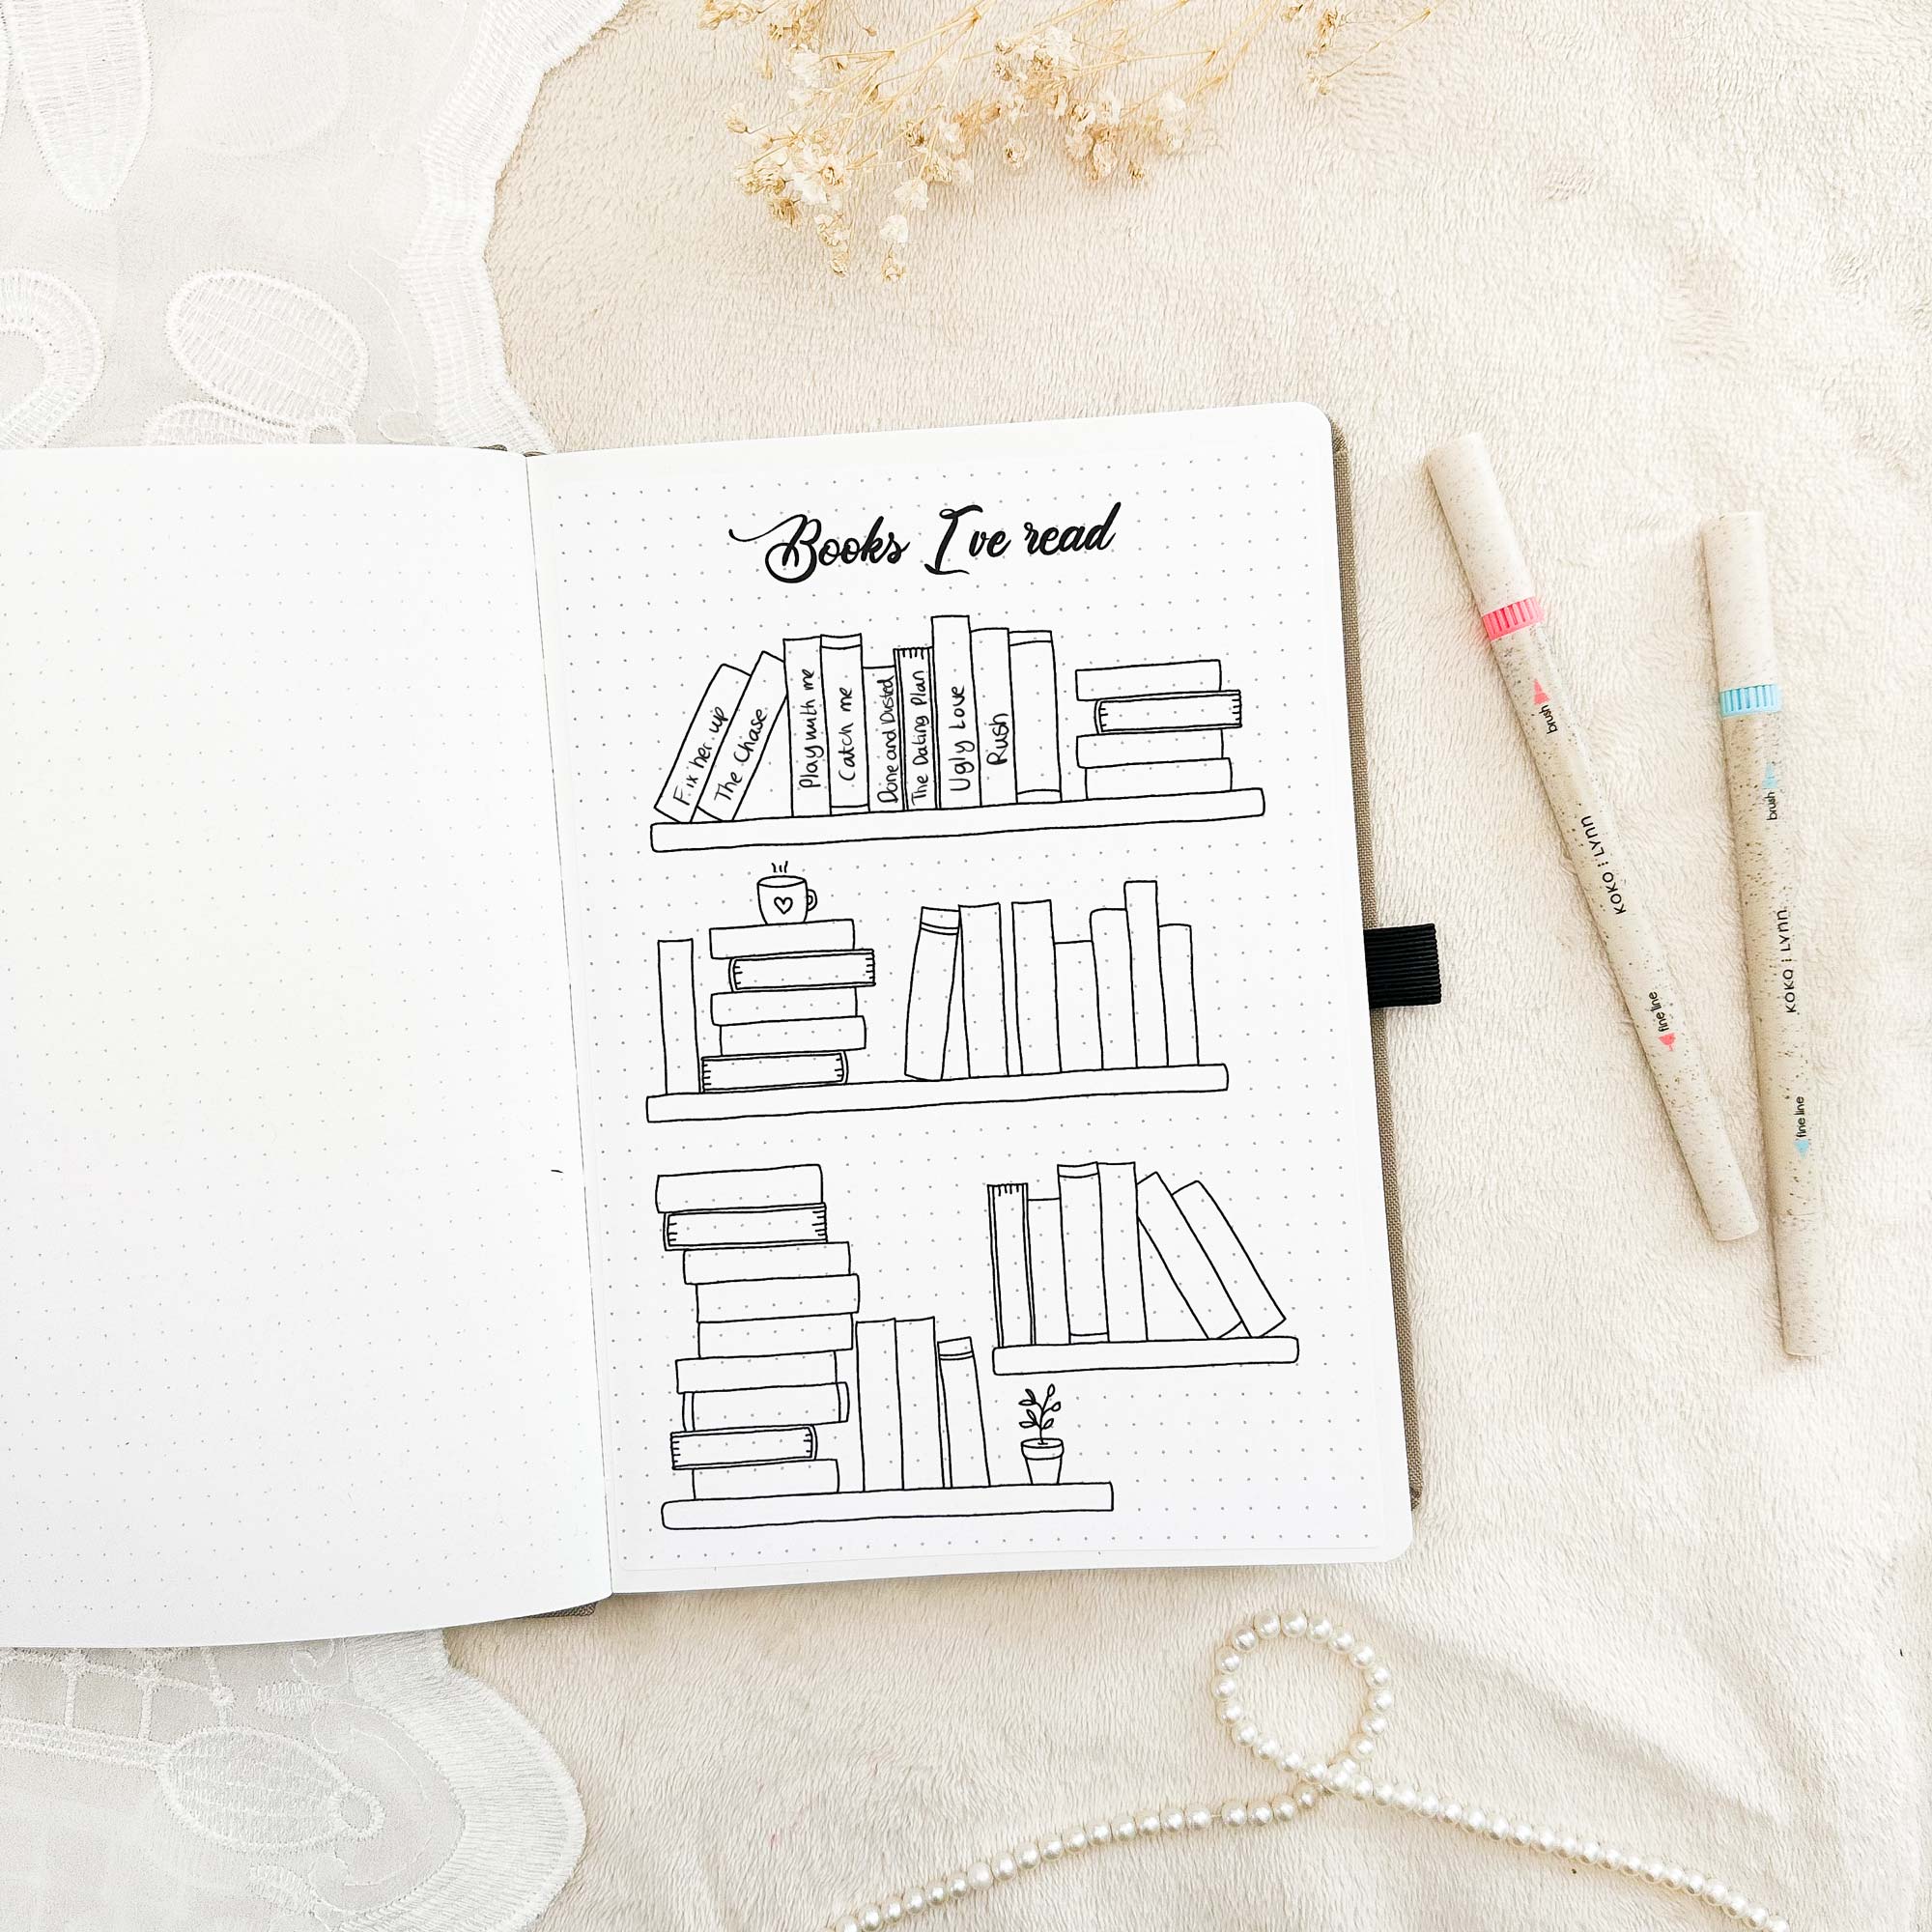 Books I've read
Fix her up
The Chase
Play with me
Catch me
Done and Dusted
The Dating Plan
Ugly Love
Rush
brush
KOKO | LYNN
fine line
brush
KOKO | LYNN
fine line